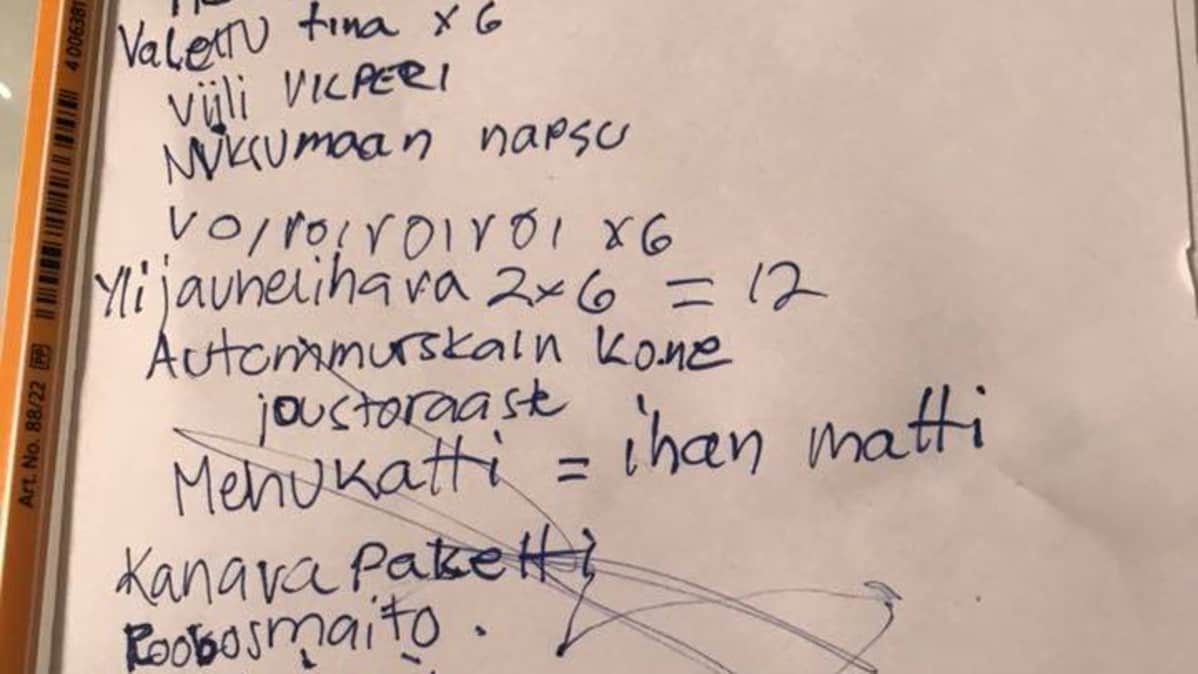 Valettu tina x 6
viili VILPERI
Nukkumaan napsu
voiroiroiroi x6
Yli jauhelihara 2x6 = 12
Autonmurskain kone
joustoraaste
Mehukatti = ihan matti
Kanara paketti
Roobosmaito.
Art. No. 88/22 PP
4006381